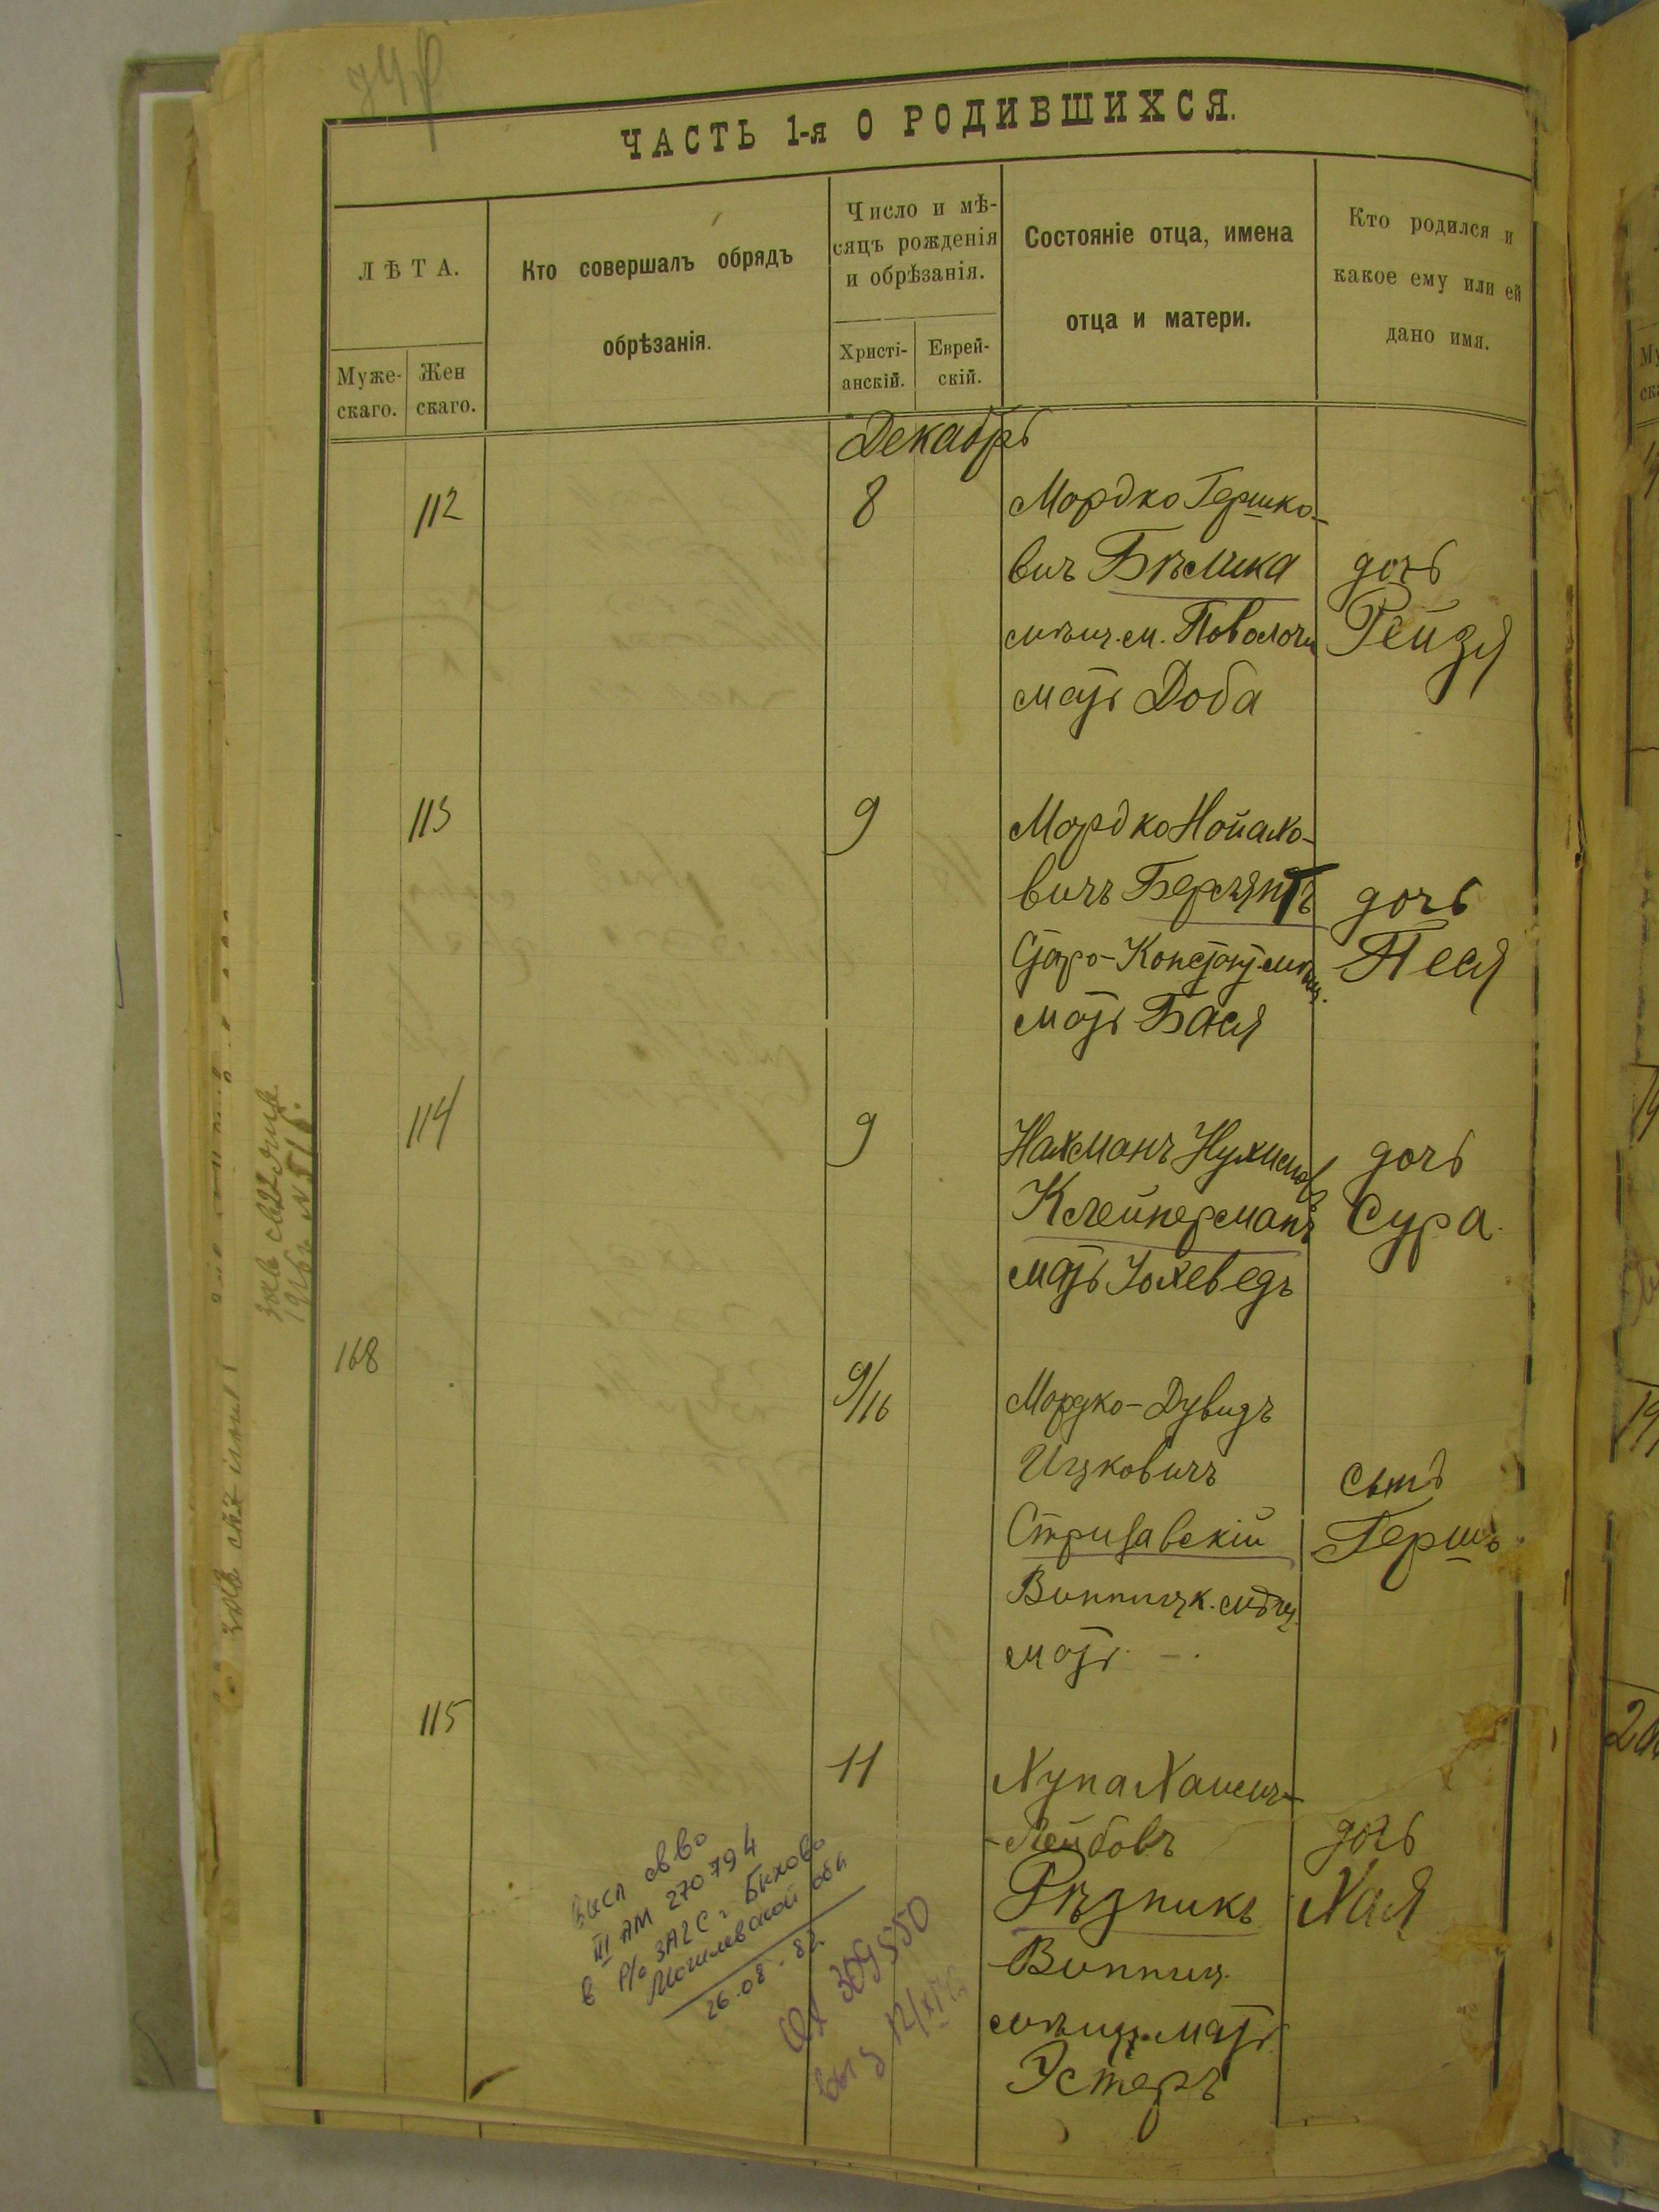 ЧАСТЬ 1-я О РОДИВШИХСЯ.
ЛѢТА.
Муже-
скаго.
Жен
скаго.
Кто совершалъ обрядъ
обрѣзанія.
Число и мѣ-
сяцъ рожденія
и обрѣзанія.
Христі-
анскій.
Еврей-
скій.
Состояніе отца, имена
отца и матери.
Кто родился и
какое ему или ей
дано имя.
Декабрь
112
8
Мордко Гершко-
вичъ Бѣлика
мѣщ. м. Поволочи
мать Доба
дочь
Рейзя
113
9
Мордко Нойахо-
вичъ
Старо-Констант. мѣщ.
мать Бася
дочь
Песя
114
9
Нахманъ Нухимов
Клейнерманъ
мать Йохеведъ
дочь
Сура.
168
9/16
Мордко-Дувидъ
Ицковичъ
Стрижавскій
Винницк. мѣщ.
мать -.
сынъ
Гершъ
115
11
Хуна Хаимъ-
-Лейбовъ
Рѣзникъ
Винниц.
мѣщ. мать
Эстеръ
дочь
Хая
Высл св во
III АМ 270794
в р/о ЗАГС г Быхово
Могилевской обл
26.08.82.
309550